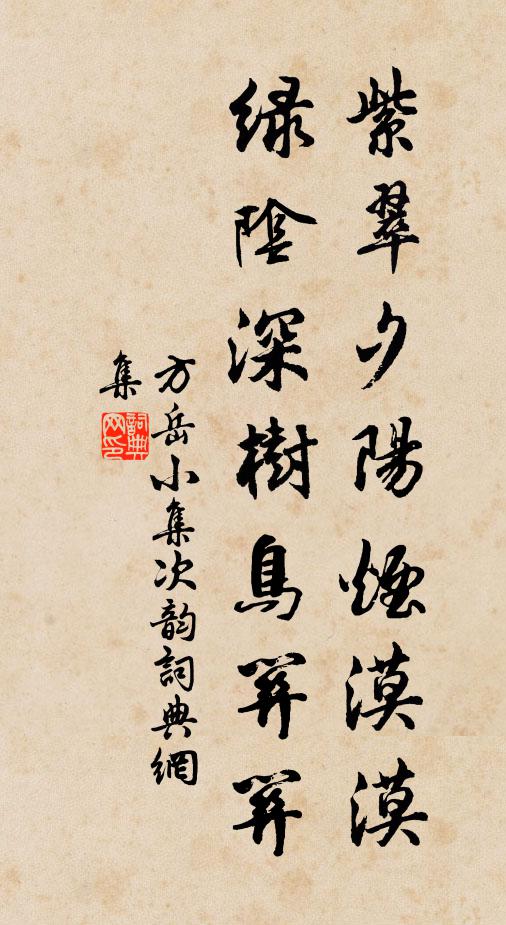 紫翠夕陽煙漠漠
緑陰深樹鳥關關
方岳小集次韵詞典網
集
詞典
网印